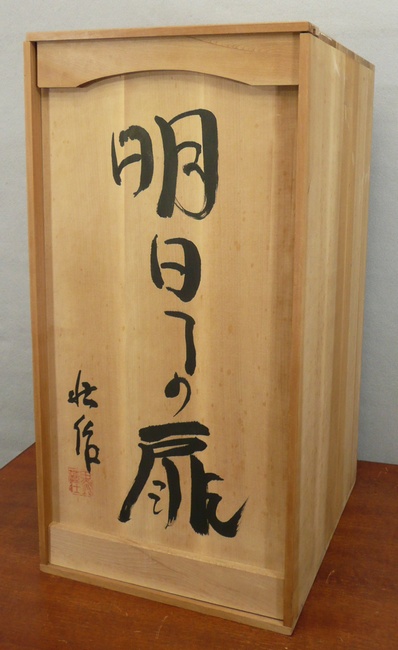 明日への扉
作